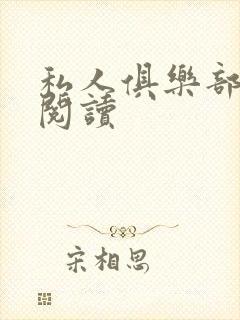 私人俱樂部
閱讀
宋相思